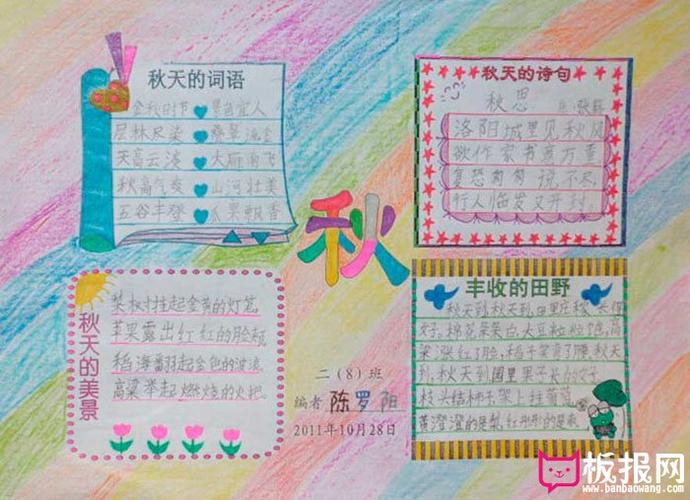 秋天的词语
金秋时节 景色宜人
层林尽染 叠翠流金
天高云淡 大雁南飞
秋高气爽 山河壮美
五谷丰登 瓜果飘香
秋天的诗句
秋思 张籍
洛阳城里见秋风
欲作家书意万重
复恐匆匆说不尽
行人临发又开封
秋
秋天的美景
梨树挂起金黄的灯笼
苹果露出红红的脸颊
稻海翻起金色的波浪
高粱举起燃烧的火把
二(8)班
编者 陈罗阳
2011年10月28日
丰收的田野
秋天到,秋天到,田里庄稼
好,棉花朵朵白,大豆粒粒饱,高
梁涨红了脸,稻子笑弯了腰,秋天
到,秋天到,园里果子长的好,
枝头结柿子,架上挂葡萄,
黄澄澄的是梨,红彤彤的是枣
板报网
www.banbaowang.com